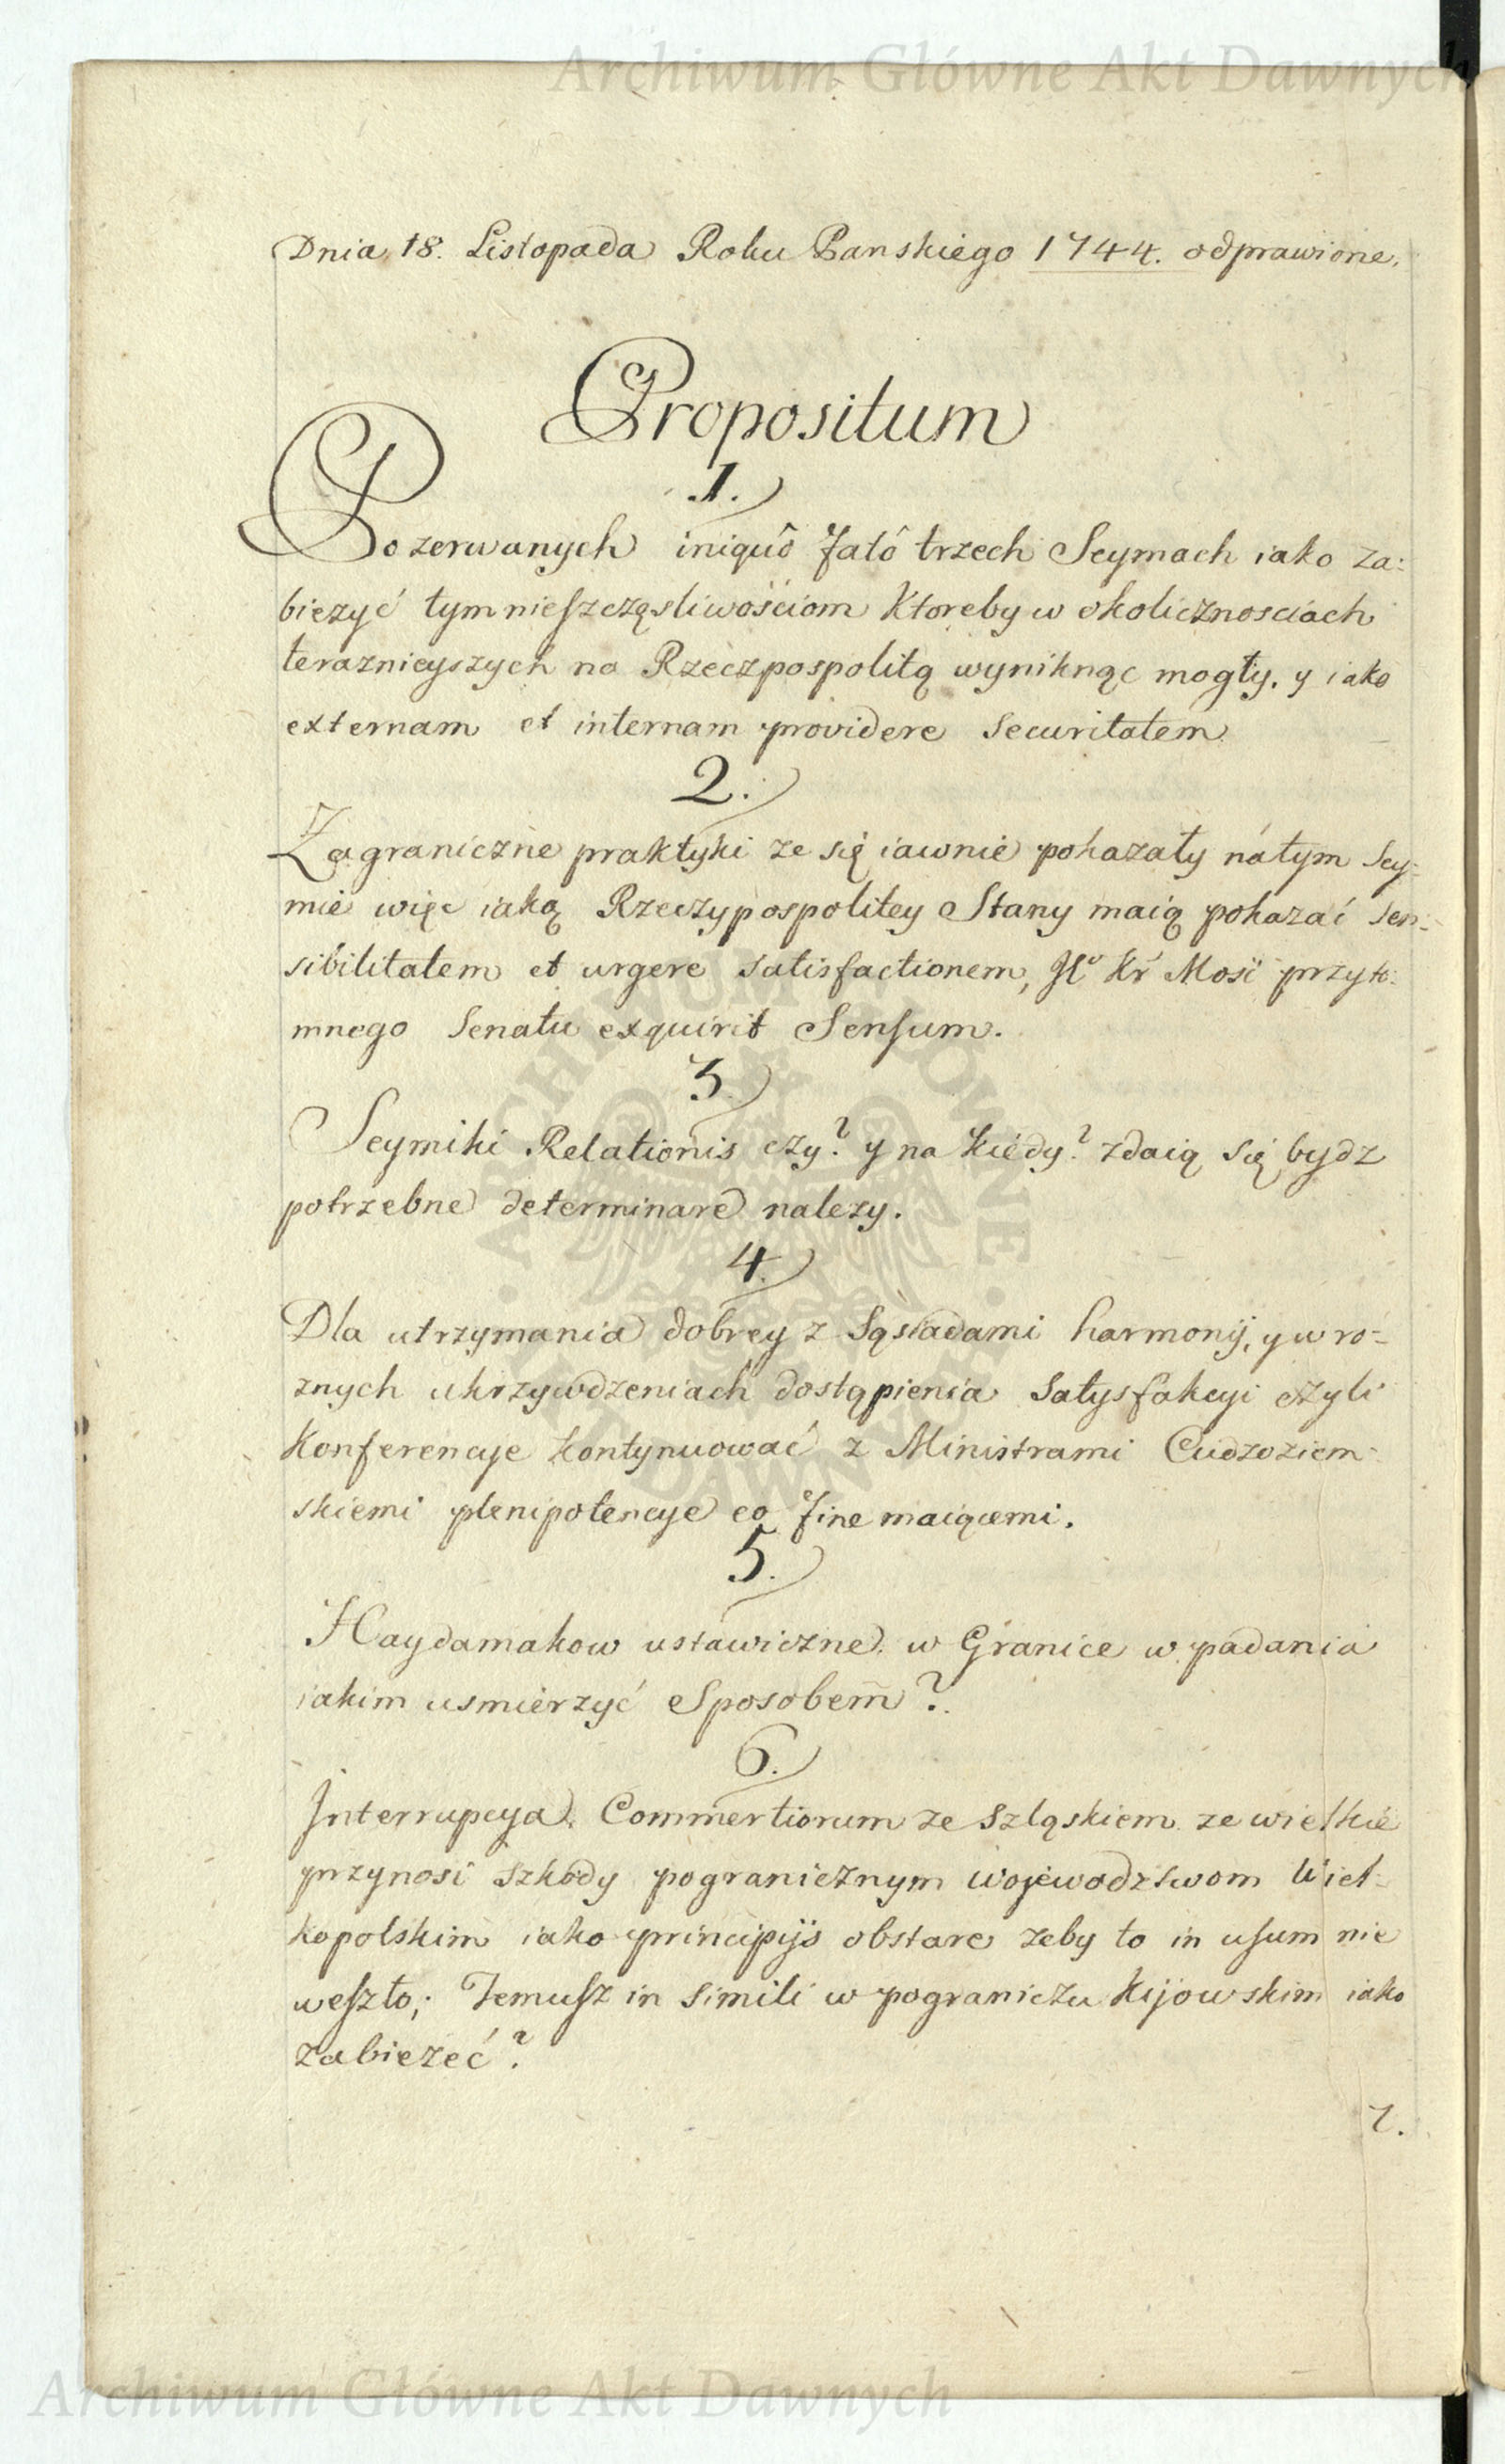 Archiwum Główne Akt Dawnych
Dnia 18. Listopada Roku Panskiego 1744. odprawione.
Propositum
1.
Po zerwanych iniquô fatô trzech Seymach iako za:
bieżyć tym nieſzczęsliwościom ktoreby w okolicznosciach
teraznieyszych na Rzeczpospolitą wyniknąc mogły. y iako
externam et internam providere securitatem
2.
Zagraniczne praktyki ze się iawnie pokazały nátym Sey-
mie więc iaką Rzeczypospolitey Stany maią pokazać sen-
sibilitatem et urgere satisfactionem, Kr Mość przyto:
mnego Senatu exquirit Senſum.
3.
Seymiki Relationis czy? y na kiedy? zdaią się bydz
potrzebne determinare nalezy.
4.
Dla utrzymania dobrey z Sąsiadami harmonij, y w ro-
znych ukrzywdzeniach dostąpienia Satysfakcyi czyli
konferencye kontynuować z Ministrami Cudzoziem-
skiemi plenipotencye eo fine maiącemi.
5.
Haydamakow ustawiczne w Granice w padania
iakim usmierzyć Sposobem̄?
6.
Interrupcya Commertiorum ze Szląskiem ze wielkie
przynosi szkody pogranicznym Wojewodztwom Wiel-
kopolskim iako principijs obstare zeby to in uſum nie
weſzło; Temuſz in simili w pograniczu Kijowskim iako
zabieżeć?
7.
ARCHIWUM GŁÓWNE AKT DAWNYCH
Archiwum Główne Akt Dawnych